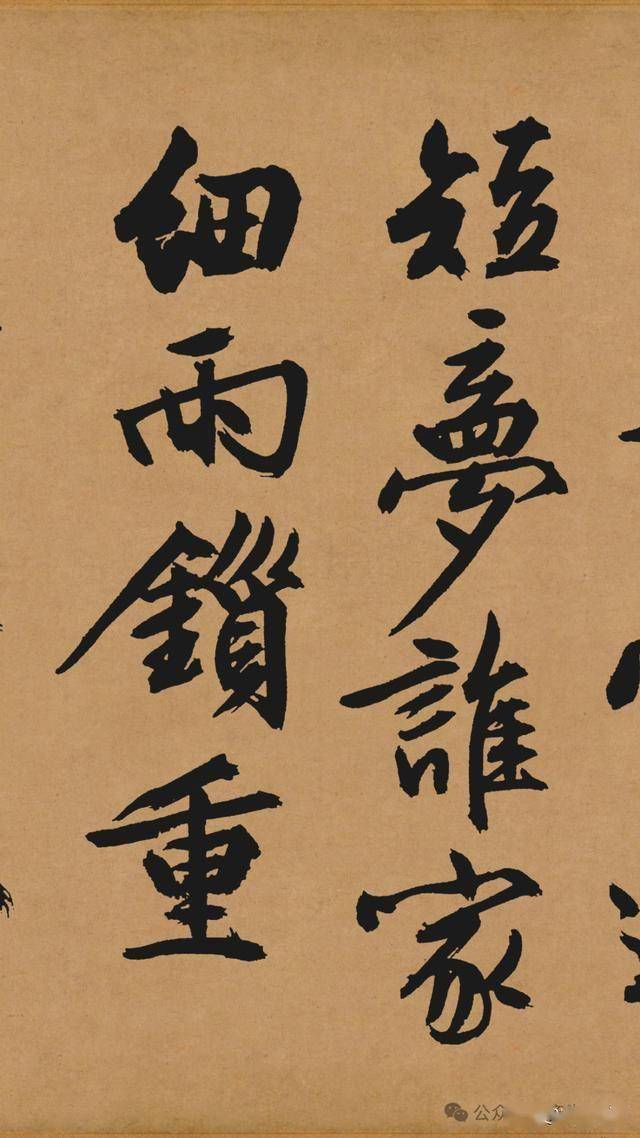 短夢誰家
細雨鎖重
公众